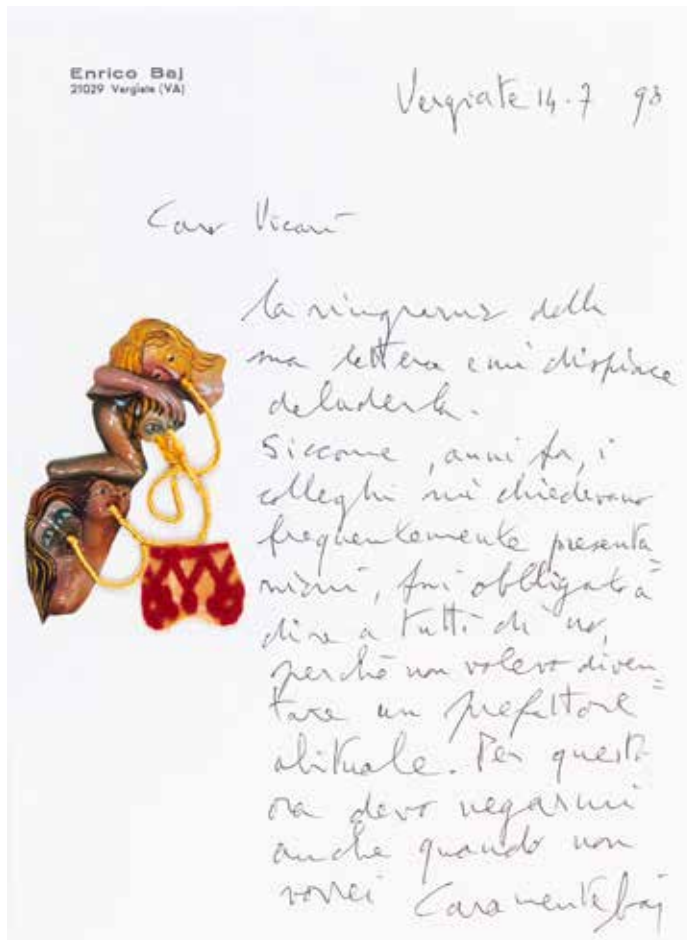 Enrico Baj
21029 Vergiate (VA)
Vergiate 14.7 93
Caro Vicari
la ringrazio della
sua lettera e mi dispiace
deluderla.
Siccome, anni fa, i
colleghi mi chiedevano
frequentemente presenta=
zioni, fui obbligato a
dire a tutti di no,
perché non volevo diven=
tare un prefattore
abituale. Per questo
ora devo negarmi
anche quando non
vorrei Caramente Baj